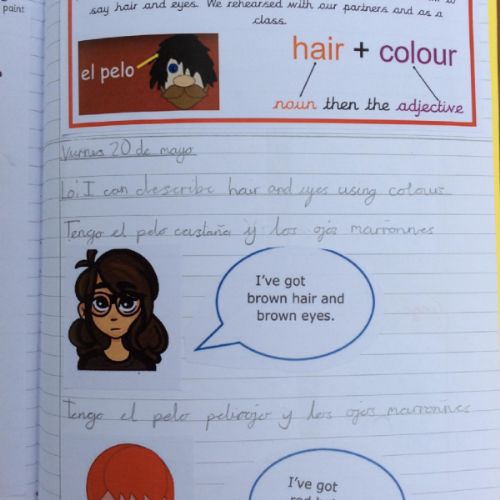 paint
say hair and eyes. We rehearsed with our partners and as a
class.
el pelo
hair + colour
noun then the adjective
Viernes 20 de mayo
Lo: I can describe hair and eyes using colours
Tengo el pelo castaña y los ojos marronnes
I've got
brown hair and
brown eyes.
Tengo el pelo pelirojo y los ojos marronnes
I've got